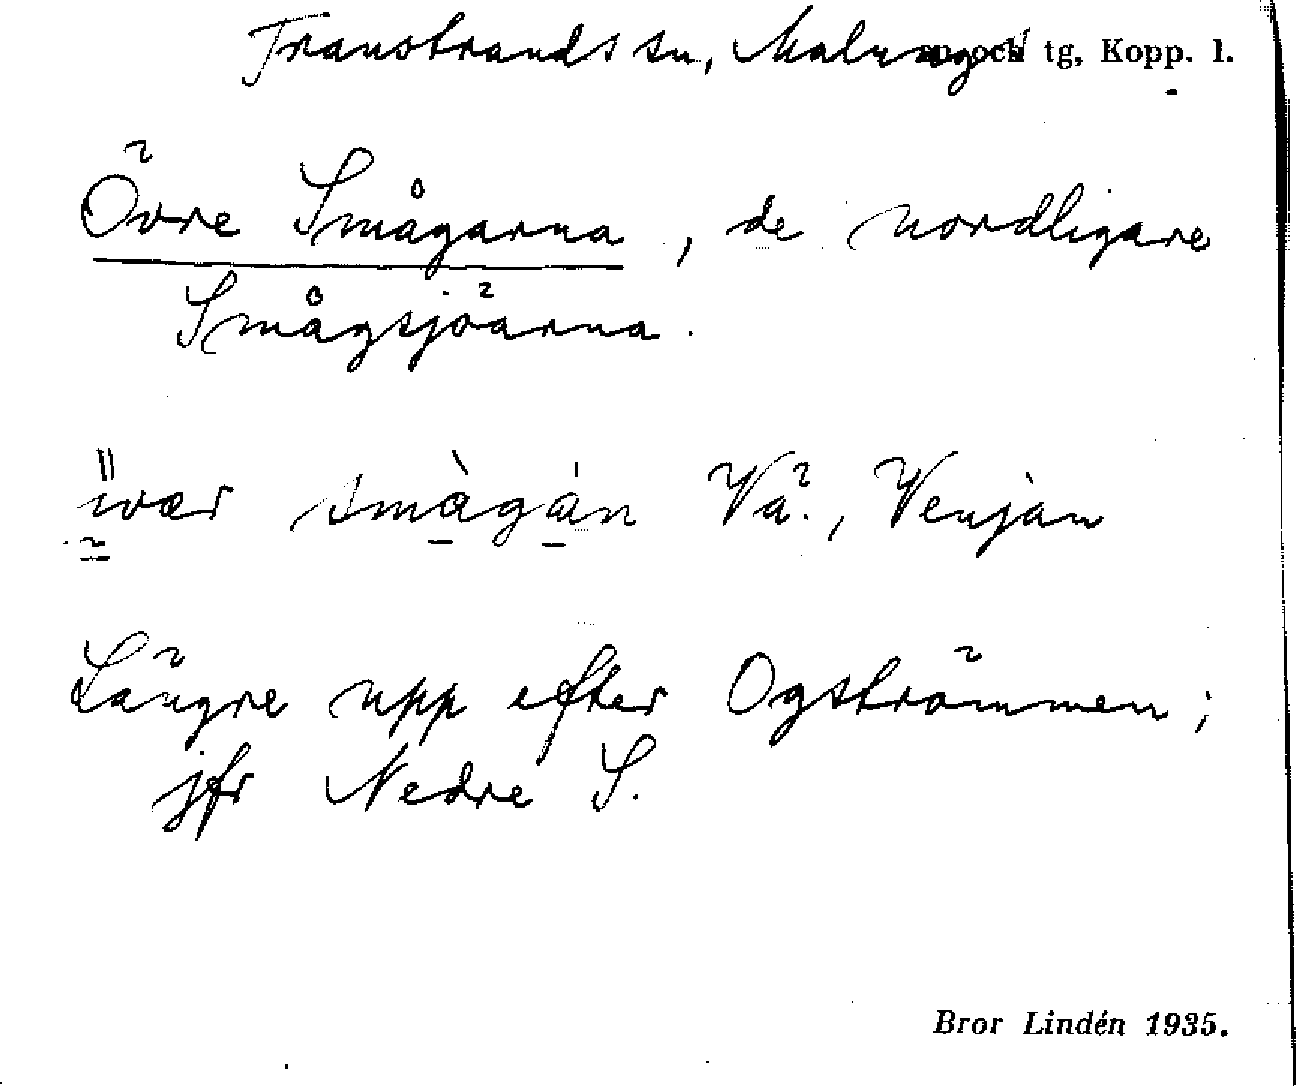 Transtrands sn, Malungs tg, Kopp. l.
Övre Smågarna, de nordligare
Smågsjöarna.
ivær smàgán Vä., Venjan
Längre upp efter Ogströmmen;
jfr Nedre S.
Bror Lindén 1935.